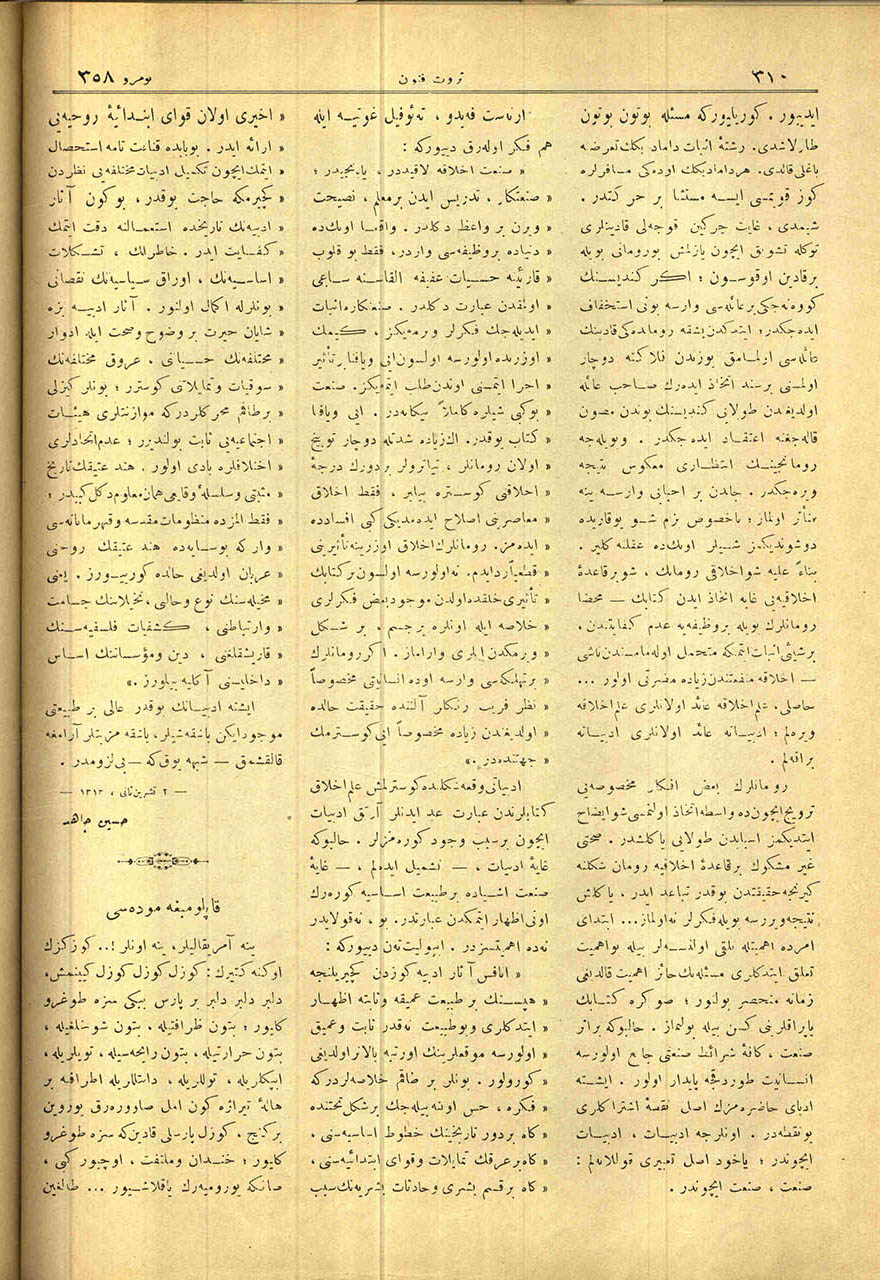 ٣١٠
ثروت فنون
نومرو ٣٥٨
ايديیور . كورياوركه مسئله بوتون بوتون
طارلاشدى. رشتۀ اثبات داماد بكك تعرضنه
باغلى قالدى. هرداماد بكك اوده كى مسافرلره
كوز قويمسى ايسه مستثنا بر حركتدر .
شيمدى ، غايت چركين قوجه لى قادينلرى
توكله تشويق ايچون يازلمش بورومانى بويله
برقادين اوقوسون ؛ اكر كنديسنك
كووه نه جكى بر عائله سى وارسه بونى استخفاف
ايده جكدر ؛ ايتمكدن بشقه روماندهكى قادينك
عائله سى آرلمامق يوزندن فلاكته دوچار
اولمسنى برسند اتخاذ ايده رك صاحب عائله
اولديغندن طولايى كنديسنك بوندن مصون
قاله جغنه اعتقاد ايده جكدر . وبويله جه
رومانجينك انتظارى معكوس نتيجه
ويره جكدر . جاندن بر احبابى وارسه ينه
متأثر اولماز ؛ باخصوص بزم شو يوقاريده
دوشونديكمز شيلر اونك ده عقلنه كلير .
بناءً عليه شو اخلاقى رومانك ، شو برقاعدۀ
اخلاقيه يى غايه اتخاذ ايدن كتابك — محضا
رومانلرك بويله بر وظيفه يه عدم كفايتندن ،
برشيئى اثبات ايتمكه متحمل اوله مامسندن ناشى
— اخلاقه منفعتندن زياده مضرتى اولور ...
حاصلى، علم اخلاقه عائد اولانلرى علم اخلاقه
ويره لم ؛ ادبياته عائد اولانلرى ادبياته
براقه لم .
رومانلرك بعض افكار مخصوصه يى
ترويج ايچون ده واسطه اتخاذ اولنمسى شو ايضاح
ايتديكمز اسبابدن طولايى ياكلشدر . صحتى
غير مشكوك برقاعدۀ اخلاقيه رومان شكلنه
كيرنجه حقيقتندن بوقدر تباعد ايدر ، ياكلش
نتيجه ويررسه بويله فكرلر نه اولماز ... ابتداى
امرده اهميتله تلقى اولنسه لر بيله بو اهميت
تعلق ايتدكلرى مسئله نك حائز اهميت قالديغى
زمانه منحصر بولنور ؛ صوكره كتابك
ياپراقلرينى كسن بيله بولنماز . حالبوكه براثر
صنعت ، كافۀ شرائط صنعتى جامع اولورسه
انسانيت طوردقجه پايدار اولور . ايشته
ادباى حاضره مزك اصل نقطۀ اشتراكلرى
بو نقطه در . اونلرجه ادبيات ، ادبيات
ايچوندر ؛ ياخود اصل تعبيرى قوللانه لم :
صنعت ، صنعت ايچوندر .
ارنست فه يدو ، ته ئوفيل غوتيه ايله
هم فكر اوله رق دييوركه :
« صنعت اخلاقه لاقيددر ، يابانجيدر ؛
« صنعتكار ، تدريس ايدن برمعلم ، نصيحت
« ويرن بر واعظ دكلدر . واقعا اونك ده
« دنياده بروظيفه سى واردر، فقط بو قلوب
« قارئينه حسيات عفيفه القاسنه ساعى
« اولمقدن عبارت دكلدر . صنعتكاره اثبات
« ايديله جك فكرلر ويرمه يكز ، كيمسنك
« اوزرنده اولورسه اولسون ايى ويا فنا بر تأثير
« اجرا ايتمسنى اوندن طلب ايتمه يكز. صنعت
« بوكبى شيلره كاملاً بيكانه در . ايى ويا فنا
« كتاب يوقدر. اك زياده شدتله دوچار توبيخ
« اولان رومانلر ، تياترولر بر دورك درجۀ
« اخلاقنى كوستره بيلير ، فقط اخلاق
« معاصرينى اصلاح ايده مديكى كبى افساد ده
« ايده مز. رومانلرك اخلاق اوزرينه تأثيرينى
« قطعياً رد ايدم. نه اولورسه اولسون بر كتابك
« تأثيرى خلقده اولدن موجود بعض فكرلرى
« خلاصه ايله اونلره بر جسم ، بر شكل
« ويرمكدن ايلرى وارماز . اكر رومانلرك
« برتهلكه سى وارسه اوده انسانيتى مخصوصاً
« نظر فريب رنكلر آلتنده حقيقت حالده
« اولديغندن زياده مخصوصاً ايى كوسترمك
« جهتنده در .»
ادبياتى وقعه شكلنده كوسترلمش علم اخلاق
كتابلرندن عبارت عد ايدنلر آرتق ادبيات
ايچون برسبب وجود كوره مزلر . حالبوكه
غايۀ ادبيات ، — تشميل ايده لم ، — غايۀ
صنعت اشياده بر طبيعت اساسيه كوره رك
اونى اظهار ايتمكدن عبارتدر . بو ، نه قولايدر
نه ده اهميتسزدر . ايپوليت ته ن دييوركه :
« انافس آثار ادبيه كوزدن كچيريلنجه
« هپسنك بر طبيعت عميقه وثابته اظهار
« ايتدكلرى وبو طبيعت نه قدر ثابت وعميق
« اولورسه موقعلرينك اورتبه بالاتر اولديغى
« كورولور . بونلر بر طاقم خلاصه لردركه
« فكره ، حس اولنه بيله جك بر شكل تحتنده
« كاه بر دور تاريخينك خطوط اساسيه سنى ،
« كاه بر عرقك تمايلات وقواى ابتدائيه سنى ،
« كاه بر قسم بشرى وحادثات بشريه نك سبب
« اخيرى اولان قواى ابتدائيۀ روحيه يى
« ارائه ايدر . بوبابده قناعت تامه استحصال
« ايتمك ايچون تكميل ادبيات مختلفه يى نظردن
« كچيرمكه حاجت يوقدر ، بوكون آثار
« ادبيه نك تاريخده استعمالنه دقت ايتمك
« كفايت ايدر . خاطراتك ، تشكلات
« اساسيه نك ، اوراق سياسيه نك نقصانى
« بونلرله اكمال اولنور . آثار ادبيه بزه
« شايان حيرت بر وضوح وصحت ايله ادوار
« مختلفه نك حسياتنى ، عروق مختلفه نك
« سوقيات وتمايلاتنى كوسترر ؛ بونلر كيزلى
« برطاقم محركلردركه موازنتلرى هيئات
« اجتماعيه يى ثابت بولنديرر ؛ عدم اتحادلرى
« اختلافلره بادى اولور . هند عتيقك تاريخ
« مثبتى وسلسلۀ وقايعى همان معلوم دكل كبيدر ؛
« فقط المزده منظومات مقدسه وقهرمانانه سى
« وار كه بوسايه ده هند عتيقك روحنى
« عريان اولديغى حالده كورييورز . يعنى
« مخيله سنك نوع وحالنى ، تخيلاتنك جسامت
« وارتباطنى ، كشفيات فلسفيه سنك
« قاريشقلغنى ، دين ومؤسساتنك اساس
« داخليسنى آكلايه بيليورز .»
ايشته ادبياتك بوقدر عالى بر طبيعتى
موجود ايكن باشقه شيلر، باشقه مزيتلر آرامغه
قالقشمق — شبهه يوق كه — بى لزومدر .
— ٢ تشرين ثانى ، ١٣١٣ —
حسين جاهد
قاپلوميغه موده سى
ينه آمريقاليلر، ينه اونلر !.. كوزكزك
اوكنه كتيرك : كوزل كوزل كوزل كيينمش،
دلبر دلبر دلبر بر پارس بيكى سزه طوغرو
كليور ؛ بتون ظرافتيله ، بتون شوخلغيله ،
بتون حرارتيله ، بتون رايحه سيله ، تويلريله ،
ايپكلريله ، توللريله ، دانتللريله اطرافنه بر
هالۀ تيرازه كون امل صاوره رق يوروين
بركنج ، كوزل پارسلى قادين كه سزه طوغرو
كليور ؛ خندان وملتفت ، اوچيور كبى ،
صانكه يورومه يه رك ياقلاشيور ... طالغين